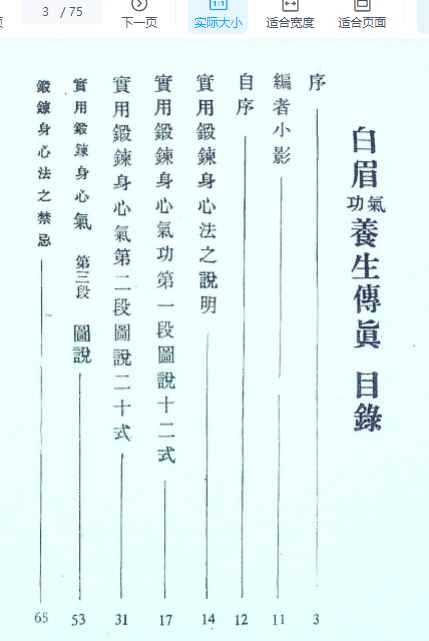 3 / 75
下一页
实际大小
适合宽度
适合页面
白眉氣功養生傳眞 目錄
序 3
編者小影 11
自序 12
實用鍛鍊身心法之說明 14
實用鍛鍊身心氣功第一段圖說十二式 17
實用鍛鍊身心氣第二段圖說二十式 31
實用鍛鍊身心氣 第三段 圖說 53
鍛鍊身心法之禁忌 65